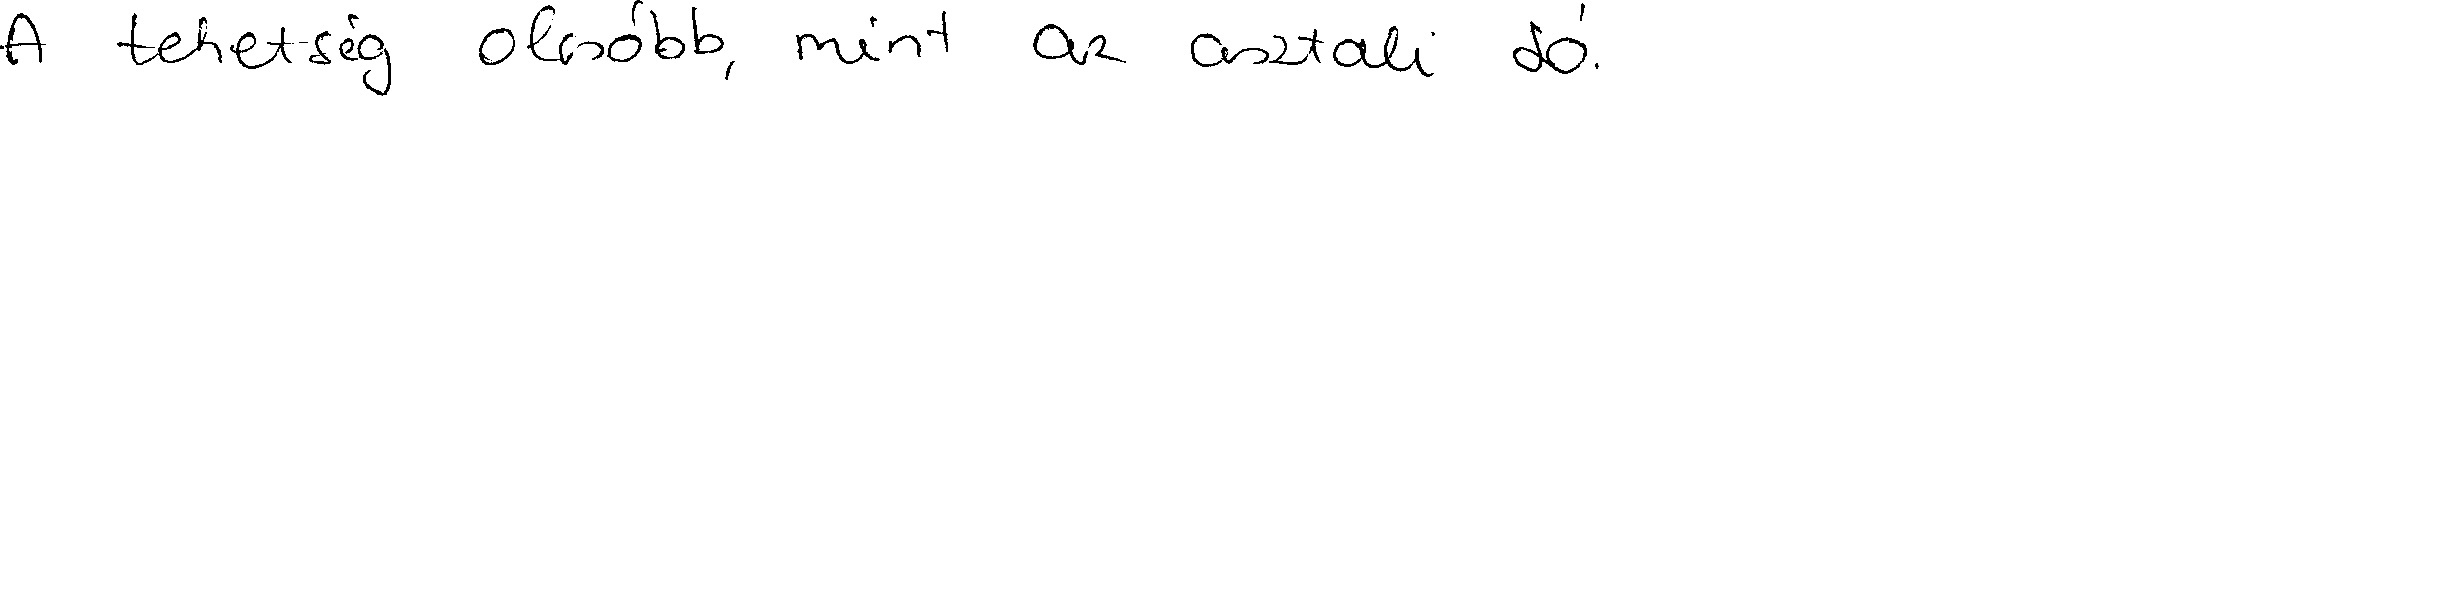 A tehetség olcsóbb, mint az asztali só.